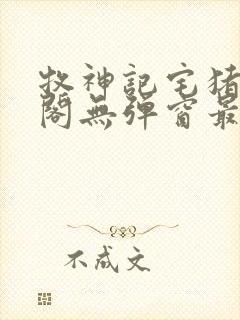 牧神记宅猪
阁無彈窗最
不成文